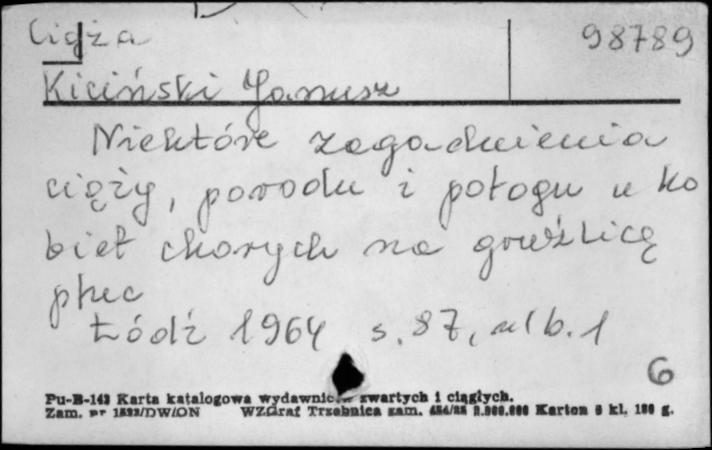 Ciąża 98789
Kiciński Janusz
Niektóre zagadnienia
ciąży, porodu i połogu u ko
biet chorych na gruźlicę
płuc
Łódź 1964 s. 87, nlb. 1
6
Pu-B-143 Karta katalogowa wydawnictw zwartych i ciągłych.
Zam. nr WZGraf Trzebnica zam. Karton 6 kl. 180 g.